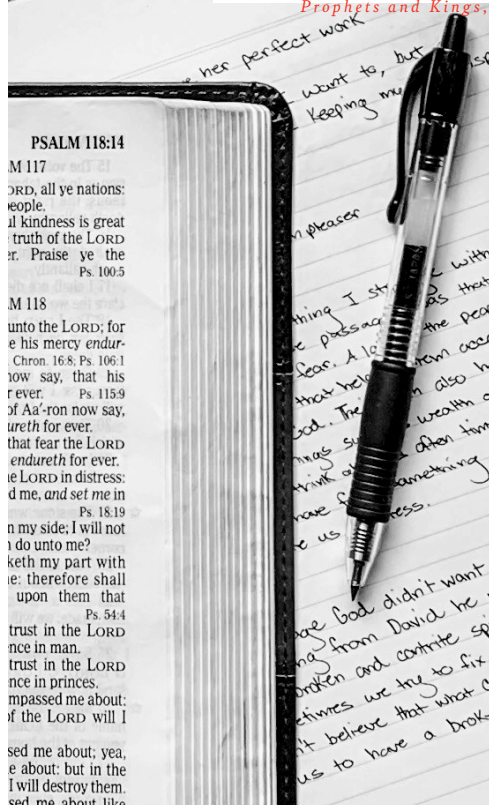 Prophets and Kings,
PSALM 118:14
LM 117
ORD, all ye nations:
people.
ul kindness is great
truth of the LORD
er. Praise ye the
Ps. 100:5
M 118
unto the LORD; for
e his mercy endur-
Chron. 16:8; Ps. 106:1
now say, that his
r ever. Ps. 115:9
of Aa′-ron now say,
ureth for ever.
that fear the LORD
endureth for ever.
ne LORD in distress:
d me, and set me in
Ps. 18:19
n my side; I will not
n do unto me?
keth my part with
e: therefore shall
upon them that
Ps. 54:4
trust in the LORD
ence in man.
trust in the LORD
nce in princes.
mpassed me about:
of the LORD will I
sed me about; yea,
e about: but in the
I will destroy them.
sed me about like
her perfect work
want to, but
Keeping my
n pleaser
thing I with
passag as that
fear. A the
that hel
God. The also h
ings wealth
think often tim
have something
e us ess.
God didn't want
ng from David he
broken and contrite spi
etimes we try to fix
n't believe that what
us to have a brok